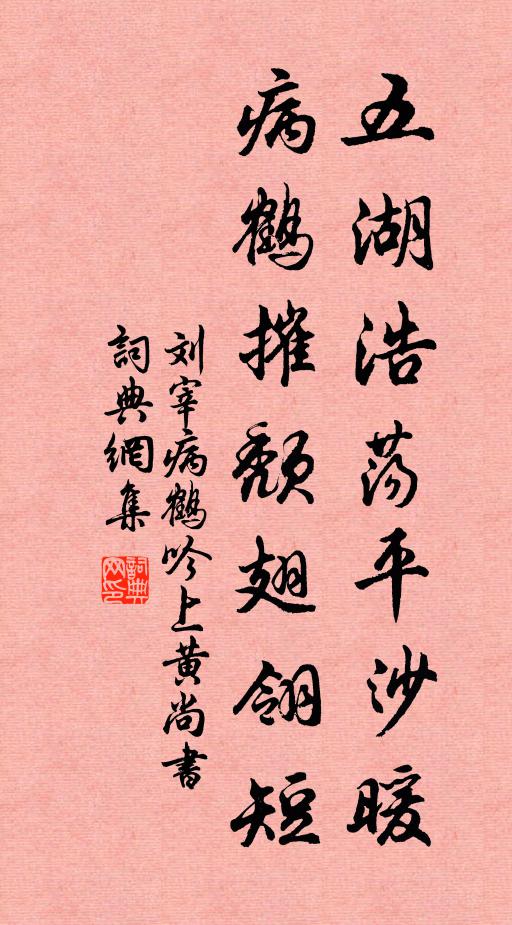 五湖浩荡平沙暖
病鶴摧頹翅翎短
刘宰病鶴吟上黄尚書
詞典網集
詞典网印